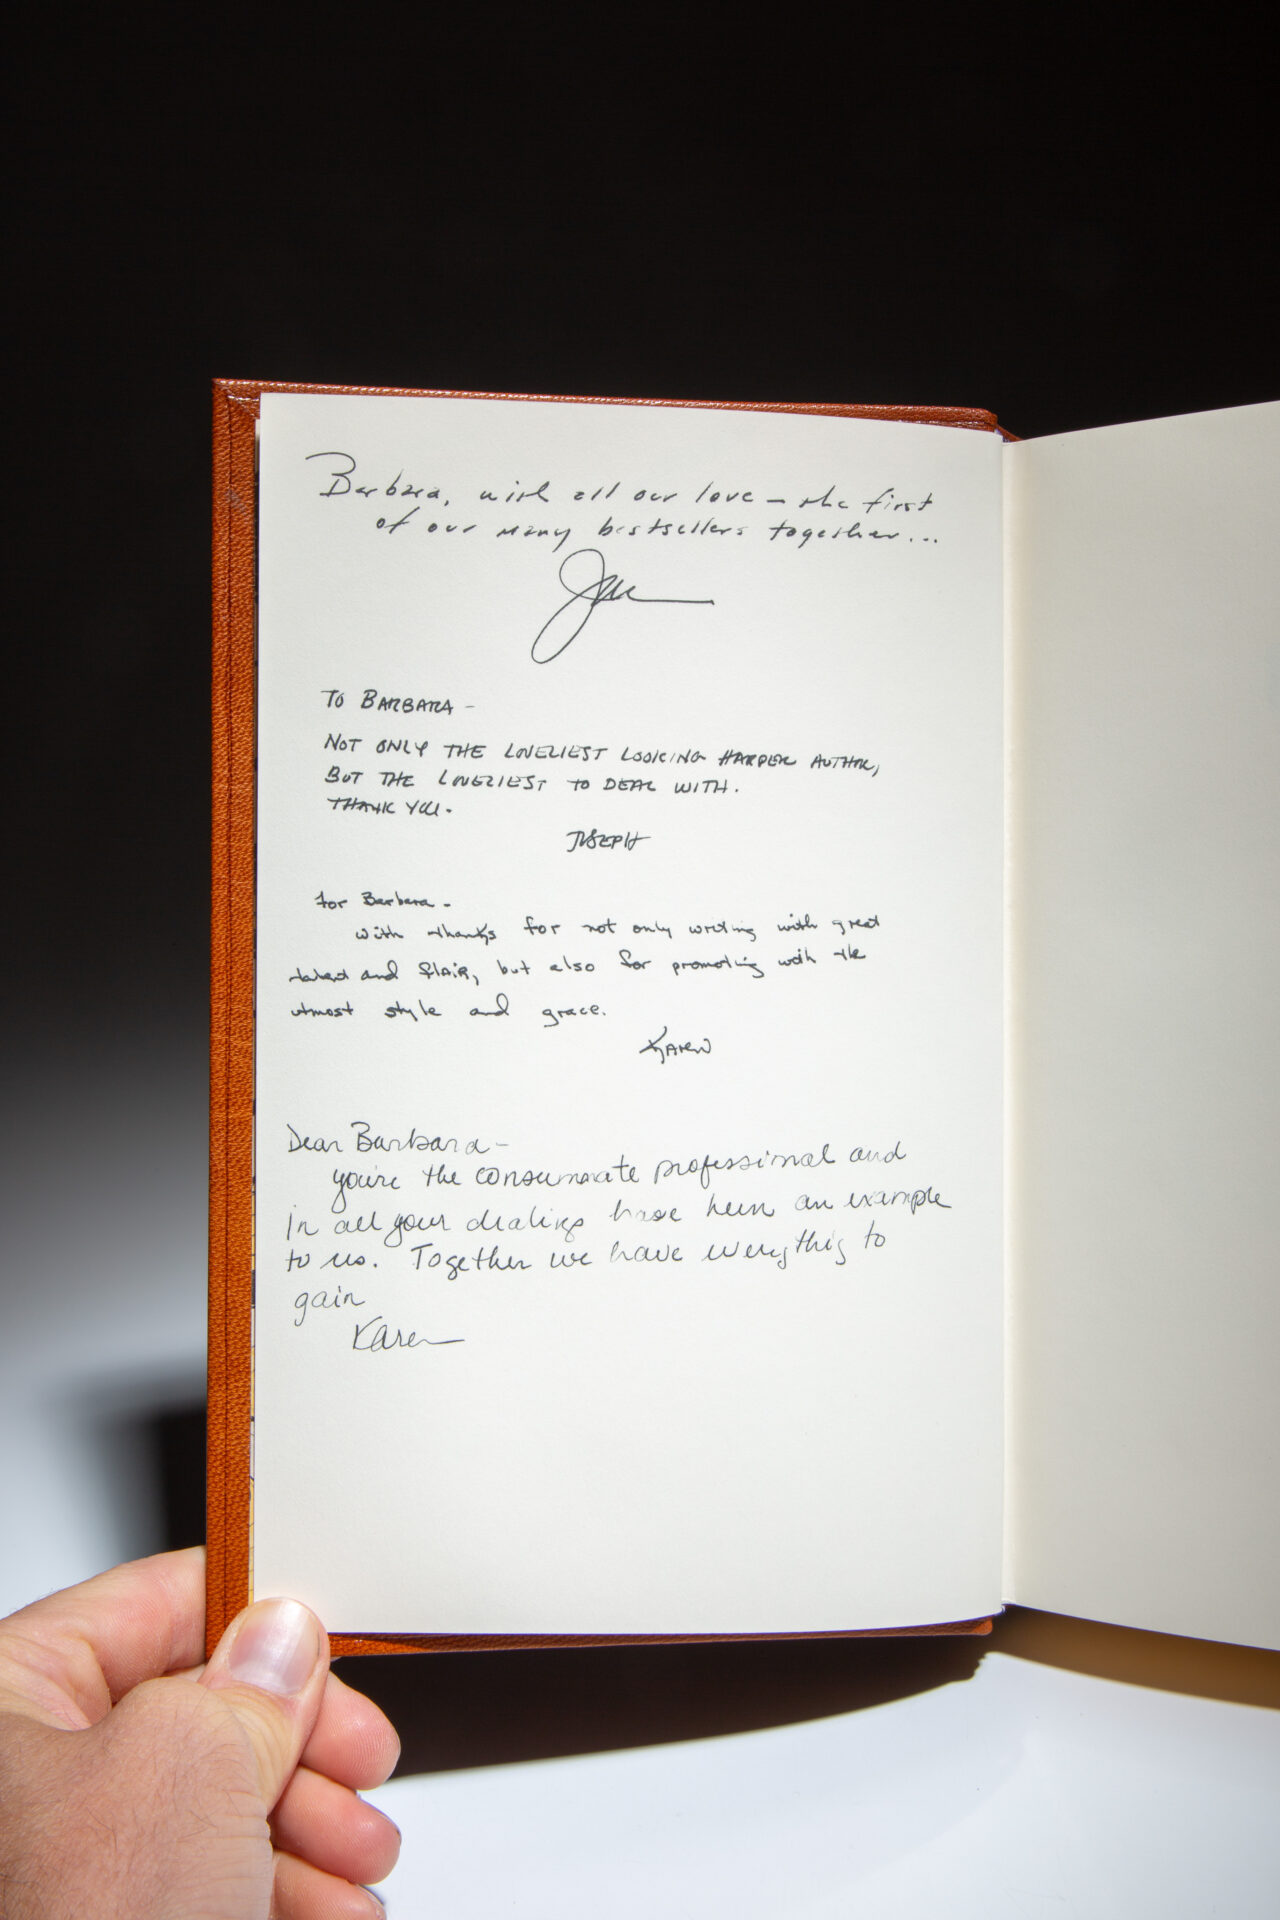 Barbara, with all our love – the first
of our many bestsellers together...
TO BARBARA –
NOT ONLY THE LOVELIEST LOOKING HARPER AUTHOR,
BUT THE LOVELIEST TO DEAL WITH.
THANK YOU.
JOSEPH
For Barbara –
With thanks for not only writing with great
talent and flair, but also for promoting with the
utmost style and grace.
Karen
Dear Barbara –
you're the consummate professional and
in all your dealings have been an example
to us. Together we have everything to
gain
Karen